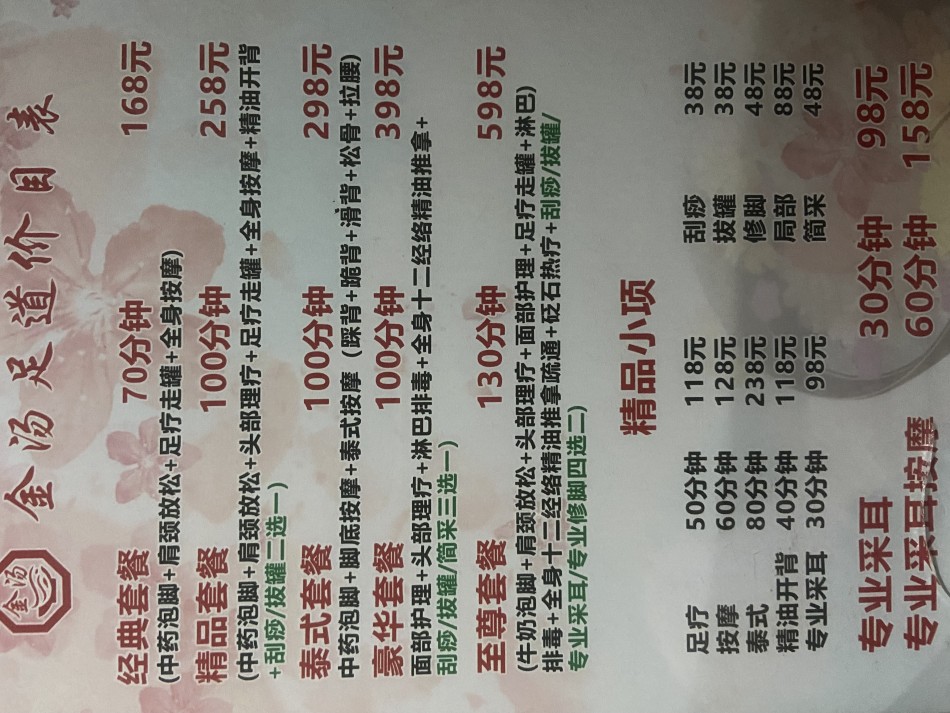 金汤
金汤足道价目表
经典套餐 70分钟 168元
(中药泡脚+肩颈放松+足疗走罐+全身按摩)
精品套餐 100分钟 258元
(中药泡脚+肩颈放松+头部理疗+足疗走罐+全身按摩+精油开背
+刮痧/拔罐二选一)
泰式套餐 100分钟 298元
中药泡脚+脚底按摩+泰式按摩 (踩背+跪背+滑背+松骨+拉腰)
豪华套餐 100分钟 398元
面部护理+头部理疗+淋巴排毒+全身十二经络精油推拿+
刮痧/拔罐/简采三选一)
至尊套餐 130分钟 598元
(牛奶泡脚+肩颈放松+头部理疗+面部护理+足疗走罐+淋巴)
排毒+全身十二经络精油推拿疏通+砭石热疗+刮痧/拔罐/
专业采耳/专业修脚四选二)
精品小项
足疗 50分钟 118元 刮痧 38元
按摩 60分钟 128元 拔罐 38元
泰式 80分钟 238元 修脚 48元
精油开背 40分钟 118元 局部 88元
专业采耳 30分钟 98元 简采 48元
专业采耳 30分钟 98元
专业采耳按摩 60分钟 158元